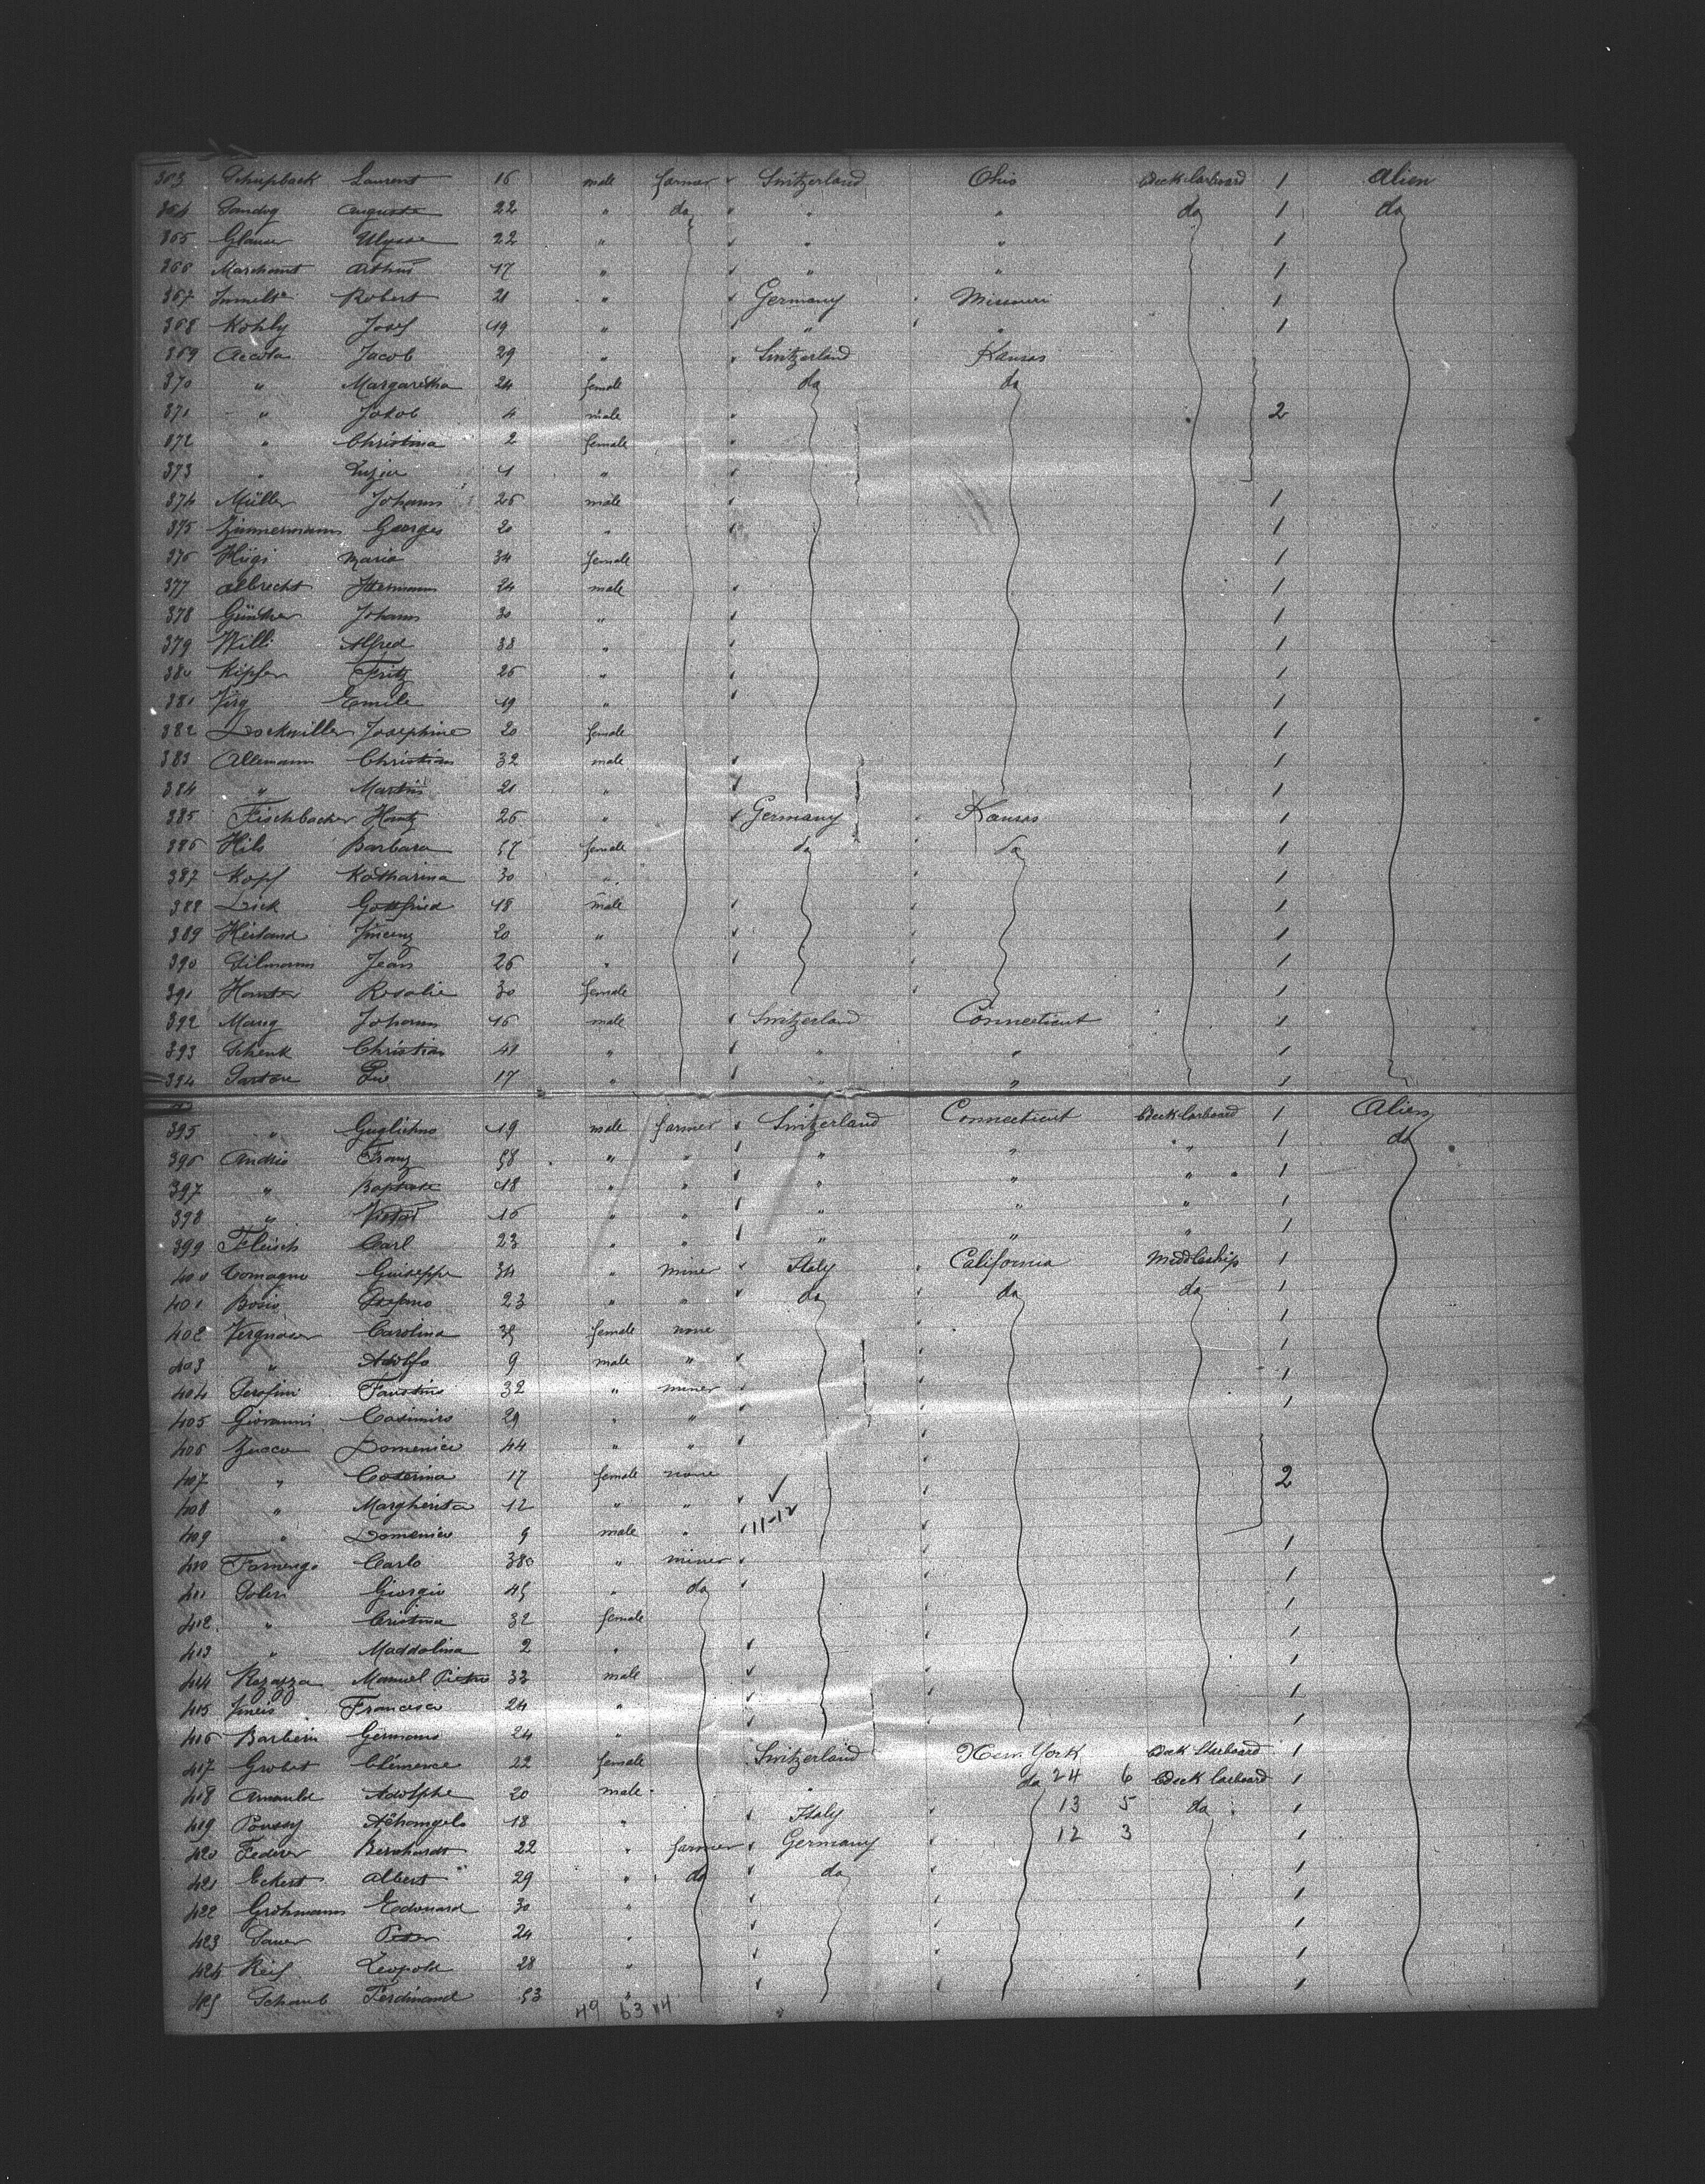 363 Schupback Laurent 16 male farmer Switzerland Ohio Deck larboard 1 Alien
364 Sandoz Auguste 22 " do " " " do 1 do
365 Glauser Ulysse 22 " " " 1
366 Marchant Arthur 17 " " " 1
367 Robert 21 " Germany Missouri 1
368 Kohly Josef 19 " " " 1
369 Accola Jacob 29 " Switzerland Kansas
370 " Margaretha 24 female do do
371 " Jakob 4 male 2
372 " Christina 2 female
373 " Luzia 1 "
374 Müller Johann 26 male 1
375 Zimmermann Georges 20 " 1
376 Hügi Maria 34 female 1
377 Albrecht Hermann 24 male 1
378 Günther Johann 30 " 1
379 Willi Alfred 38 " 1
380 Kipfer Fritz 26 " 1
381 Emile 19 " 1
382 Dockwiller Josephine 20 female 1
383 Allemann Christian 32 male 1
384 " Martin 21 " 1
385 Fischbacher 26 " Germany Kansas 1
386 Hils Barbara 57 female do do 1
387 Kopf Katharina 30 " 1
388 Dick Gottfried 18 male 1
389 Vincenz 20 " 1
390 Jean 26 " 1
391 Rosalie 30 female 1
392 Johann 16 male Switzerland Connecticut 1
393 Schenk Christian 41 " " " 1
394 17 " " " 1
395 " Guglielmo 19 male farmer Switzerland Connecticut Deck larboard 1 Alien
396 Franz 58 " " " " " 1 do
397 " Baptiste 18 " " " " " 1
398 " Victor 16 " " " " " 1
399 Fleisch Carl 23 " " " " " 1
400 Comagno Guiseppe 34 " miner Italy California Middleship 1
401 Bosio Stefano 23 " " do do do 1
402 Carolina 35 female none 1
403 " Adolfo 9 male " 1
404 Serafini Faustino 32 " miner 1
405 Giovanni Casimiro 29 " " 1
406 Zucca Domenico 44 " "
407 " Caterina 17 female none 2
408 " Margherita 12 " "
11-12
409 " Domenico 9 male " 1
410 Carlo 38 " miner 1
411 Soleri Giorgio 45 " do 1
412 " Cristina 32 female 1
413 " Maddalina 2 " 1
414 Manuel Pietro 33 male 1
415 Francesco 24 " 1
416 Barbein Germano 24 "
417 Grobet Clémence 22 female Switzerland New-York Deck Starboard 1
418 Arnauld Adolphe 20 male " do 24 6 Deck larboard 1
419 18 " Italy 13 5 do 1
420 Federer Bernhardt 22 " farmer Germany 12 3 1
421 Eckert Albert 29 " do do 1
422 Grohmann Edouard 30 " 1
423 Peter 24 " 1
424 Reif Leopold 28 " 1
425 Schaub Ferdinand 53 " 1
49 63 44